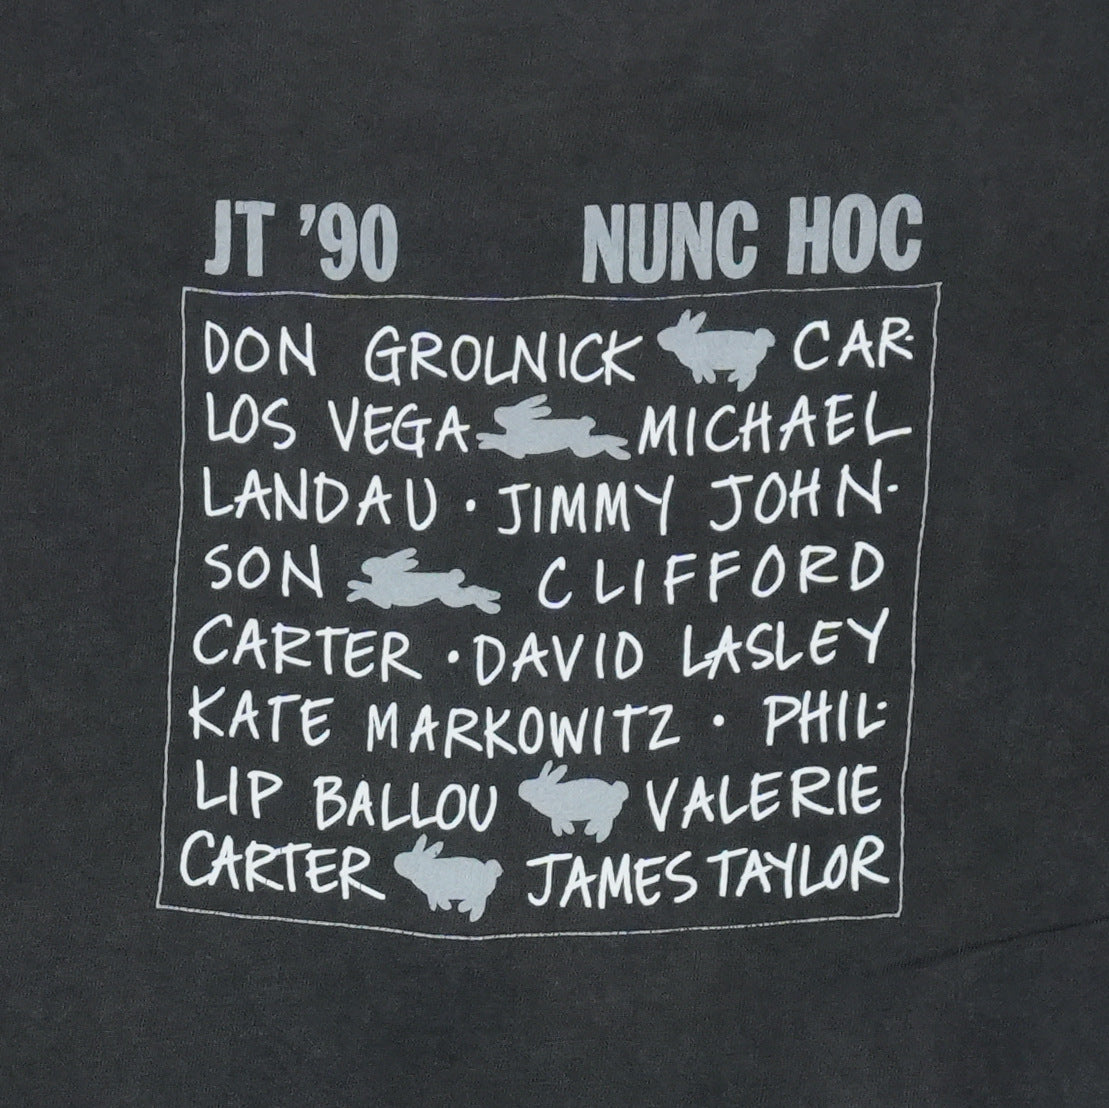 JT '90 NUNC HOC
DON GROLNICK CAR-
LOS VEGA MICHAEL
LANDAU · JIMMY JOHN-
SON CLIFFORD
CARTER · DAVID LASLEY
KATE MARKOWITZ · PHIL-
LIP BALLOU VALERIE
CARTER JAMES TAYLOR